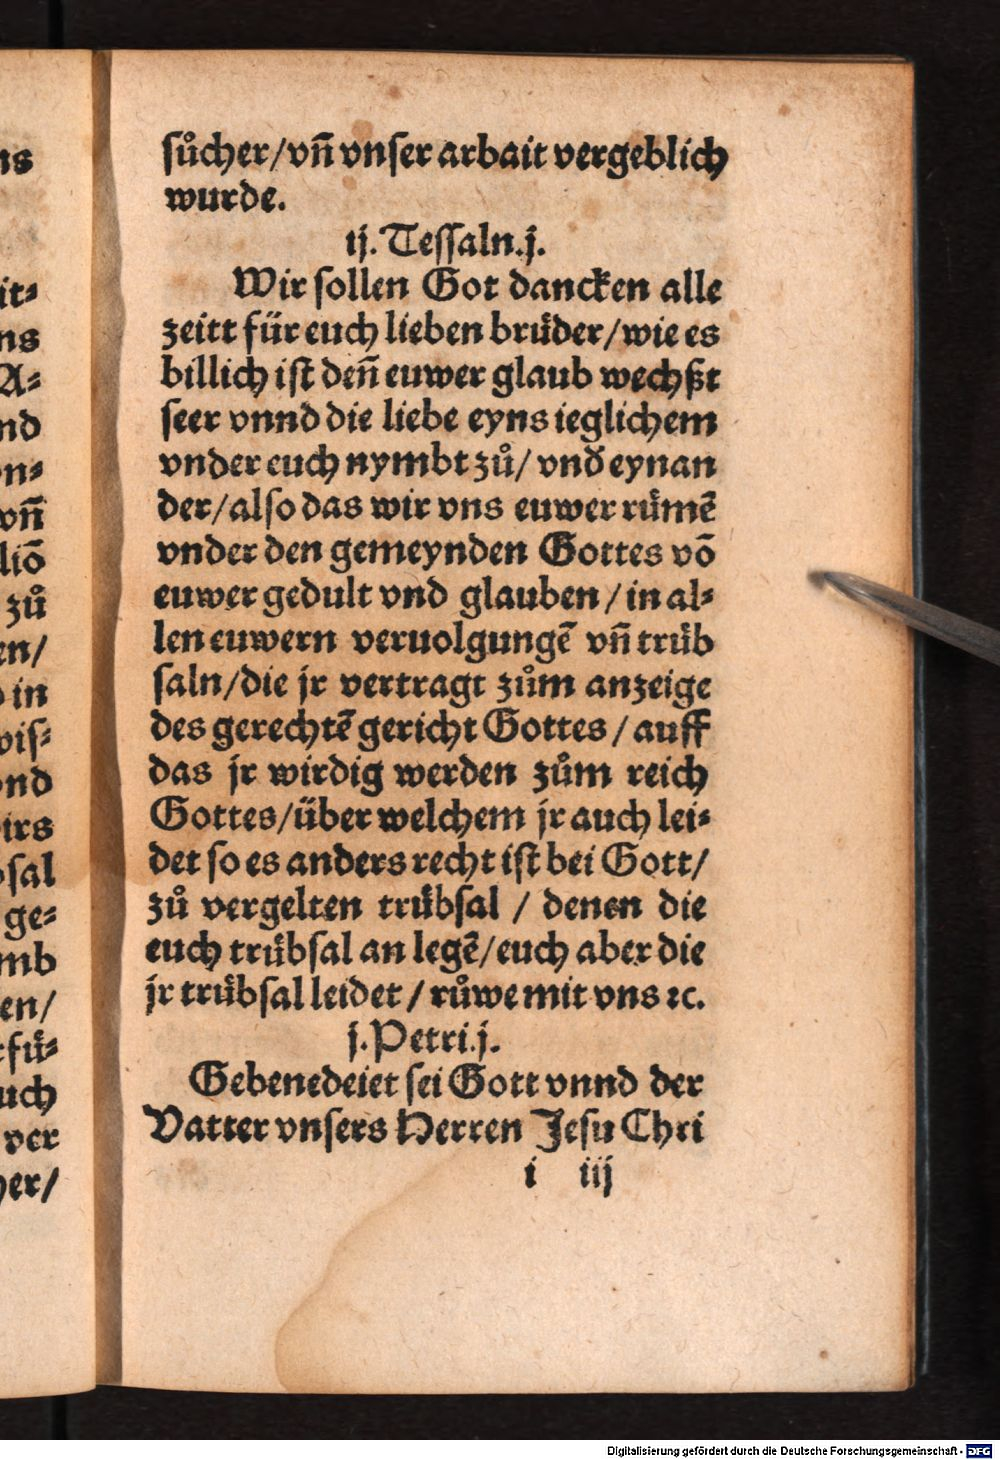 sůcher/vñ vnser arbait vergeblich
wurde.
ij. Tessaln.j.
Wir sollen Got dancken alle
zeitt für euch lieben brůder/wie es
billich ist deñ euwer glaub wechßt
seer vnnd die liebe eyns ieglichem
vnder euch nymbt zů/ vnd eynan
der/also das wir vns euwer růmē
vnder den gemeynden Gottes vō
euwer gedult vnd glauben/in al⸗
len euwern veruolgungē vñ trůb
saln/die jr vertragt zům anzeige
des gerechtē gericht Gottes/auff
das jr wirdig werden zům reich
Gottes/über welchem jr auch lei⸗
det so es anders recht ist bei Gott/
zů vergelten trůbsal / denen die
euch trůbsal an legē/euch aber die
jr trůbsal leidet/růwe mit vns ꝛc.
j.Petri.j.
Gebenedeiet sei Gott vnnd der
Vatter vnsers Herren Jesu Chri
i iij
ns
it⸗
ns
A⸗
nd
on⸗
vñ
liō
zů
en/
in
wis⸗
ond
irs
sal
ge⸗
mb
en/
fů⸗
uch
ver
her/
Digitalisierung gefördert durch die Deutsche Forschungsgemeinschaft - DFG